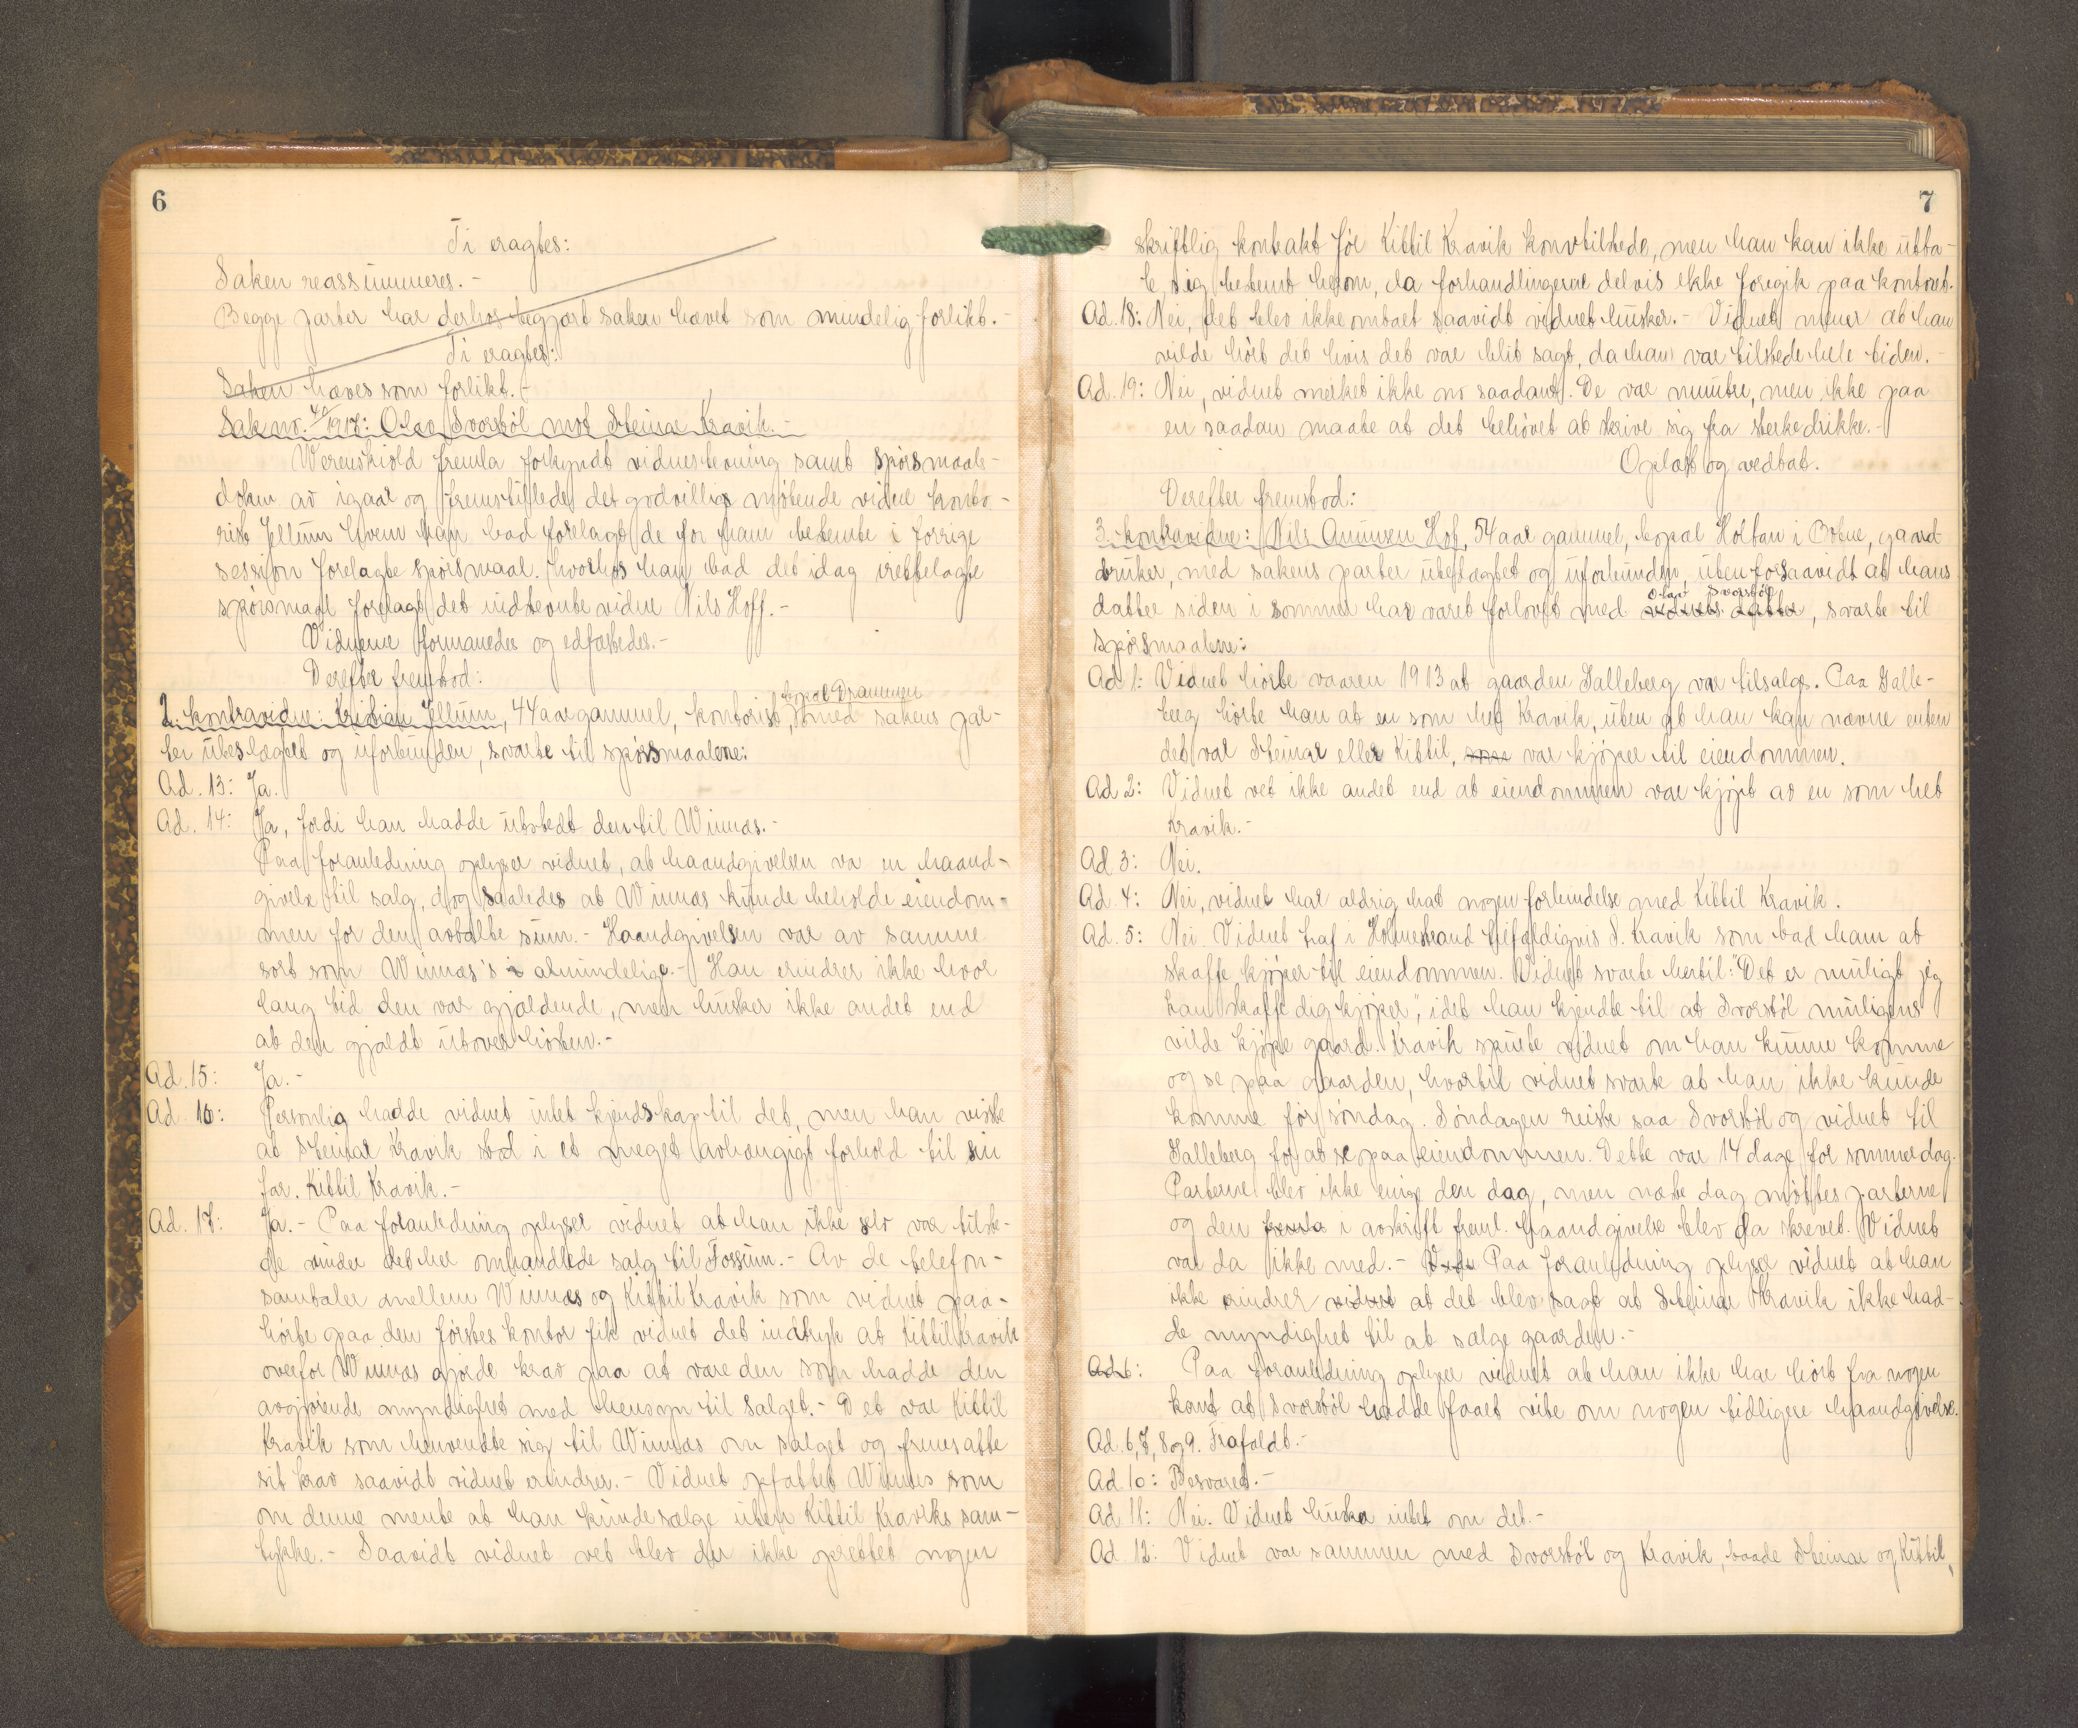 6
Ti eragtes:
Saken reassümmeres. -
Begge parter har derhos begjært saken hævet som mindelig forlikt. -
Ti eragtes:
Saken hæves som forlikt. -
Sak nr. 40/1917: Olav Svorstöl mot Steinar Kravik. -
Werenskiold fremla forkyndt vidnestevning samt spörsmaals-
dokm. av igaar og fremstillede det godvillig mötende vidne konto-
rist Jellum hvem han bad forelagt de for ham bestemte i forrige
session forelagte spörsmaal, hvorhos han bad det idag irettelagte
spörsmaal forelagt det indstevnte vidne Nils Hoff. -
Vidnerne formanedes og edfæstedes. -
Derefter fremstod:
bopæl Drammen
2. kontravidne: Kristian Jellum, 44 aar gammel, kontorist, med sakens par-
ter übeslægtet og üforbunden, svarte til spörsmaalene:
Ad. 13: Ja.
Ad. 14: Ja, fordi han hadde ütstedt den til Winnæs. -
Paa foranledning oplyser vidnet, at haandgivelsen va en haand-
givelse til salg, dog saaledes at Winnæs künde beholde eiendom-
men for den avtalte süm. - Haandgivelsen var av samme
sort som Winnæs's almindelige. - Han erindrer ikke hvor
lang tid den var gjældende, men hüsker ikke andet end
at den gjaldt ütover hösten. -
Ad. 15: Ja. -
Ad. 16: Personlig hadde vidnet intet kjendskap til det, men han visste
at Steinar Kravik stod i et meget avhængigt forhold til sin
far. Kittil Kravik. -
Ad. 17: Ja. - Paa foranledning oplyser vidnet at han ikke selv var tilste-
de ünder det her omhandlede salg til Fossüm. - Av de telefon-
samtaler mellem Winnæs og Kittil Kravik som vidnet paa-
hörte paa den förstes kontor fik vidnet det indtryk at Kittil Kravik
overfor Winnæs gjorde krav paa at være den som hadde den
avgjörende myndighet med hensyn til salget. - Det var Kittil
Kravik som henvendte sig til Winnæs om salget og fremsatte
sit krav saavidt vidnet erindrer. - Vidnet opfattet Winnæs som
om denne mente at han künde sælge üten Kittil Kraviks sam-
tykke. - Saavidt vidnet vet blev der ikke oprettet nogen
7
skriftlig kontrakt för Kittil Kravik kom tilstede, men han kan ikke ütta-
le sig bestemt herom, da forhandlingerne delvis ikke foregik paa kontoret.
Ad. 18: Nei, det blev ikke omtaet saavidt vidnet hüsker. - Vidnet mener at han
vilde hört det hvis det var blit sagt, da han var tilstede hele tiden. -
Ad. 19: Nei, vidnet merket ikke no saadant. De var müntre, men ikke paa
en saadan maate at det behövet at skrive sig fra sterke drikke. -
Oplæst og vedtat.
Derefter fremstod:
3. kontravidne: Nils Hof, 54 aar gammel, bopæl Holtan i Botne, gaard-
brüker, med sakens parter übeslægtet og üforbunden, üten forsaavidt at hans
Olav Svorstöl
datter siden i sommer har været forlovet med, svarte til
spörsmaalene:
Ad 1: Vidnet hörte vaaren 1913 at gaarden Salleberg var tilsalgs. Paa Salle-
berg hörte han at en som het Kravik, üten at han kan nævne enten
det var Steinar eller Kittil, var kjöper til eiendommen.
Ad 2: Vidnet vet ikke andet end at eiendommen var kjöpt av en som het
Kravik. -
Ad 3: Nei.
Ad. 4: Nei, vidnet har aldrig hat nogen forbindelse med Kittil Kravik.
Ad. 5: Nei. Vidnet traf i Holmestrand tilfældigvis S. Kravik som bad ham at
skaffe kjöper til eiendommen. Vidnet svarte hertil: "Det er müligt jeg
kan skaffe dig kjöper", idet han kjendte til at Svorstöl müligens
vilde kjöpe gaard. Kravik spürte vidnet om han künne komme
og se paa gaarden, hvortil vidnet svarte at han ikke künde
komme för söndag. Söndagen reiste saa Svorstöl og vidnet til
Salleberg for at se paa eiendommen. Dette var 14 dage för sommerdag.
Parterne blev ikke enige den dag, men næste dag möttes parterne
og den i avskrift freml. haandgivelse blev da skrevet. Vidnet
var da ikke med. - Paa foranledning oplyser vidnet at han
ikke erindrer at det blev sagt at Steinar Kravik ikke had-
de myndighet til at sælge gaarden. -
Ad 6: Paa foranledning oplyser vidnet at han ikke har hört fra nogen
kant at Svorstöl hadde faaet vite om nogen tidligere haandgivelse.
Ad. 6, 7, 8 og 9. Frafaldt. -
Ad. 10: Besvaret. -
Ad 11: Nei. Vidnet hüsker intet om det. -
Ad. 12: Vidnet var sammen med Svorstöl og Kravik, baade Steinar og Kittil,